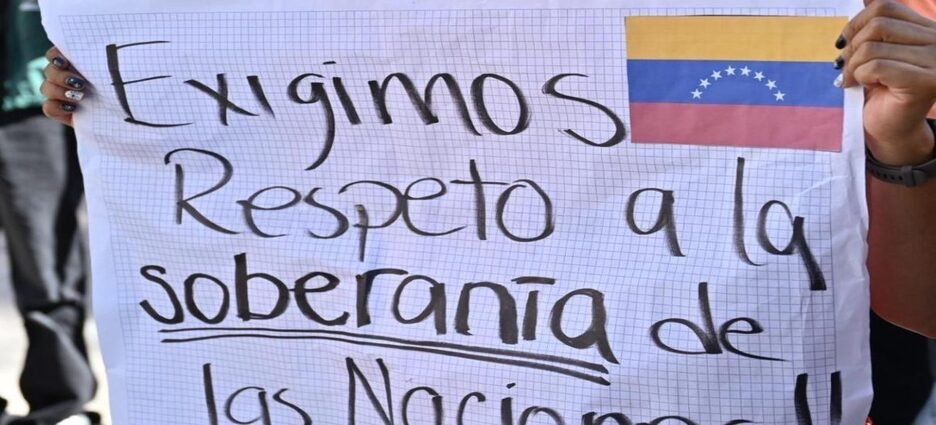 Exigimos
Respeto a la
soberanía de
las Naciones!!